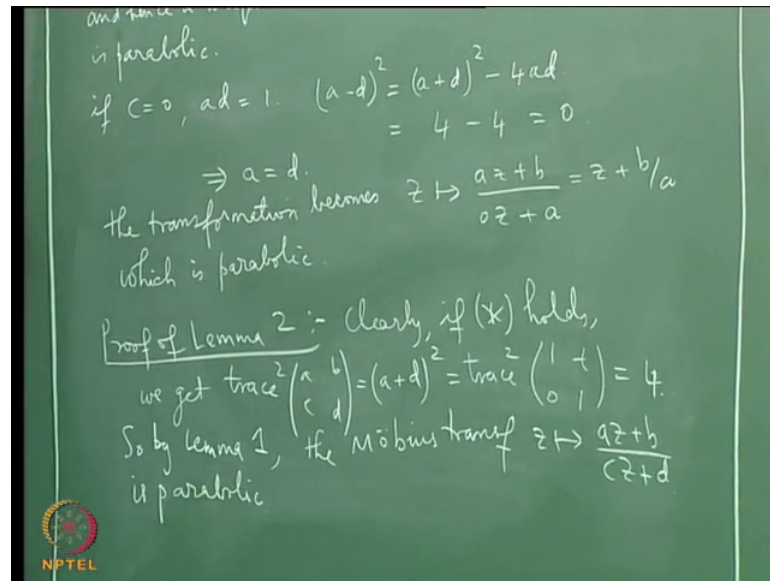 and hence
is parabolic.
if c=0, ad = 1. (a-d)² = (a+d)² - 4ad
= 4 - 4 = 0
⇒ a = d.
the transformation becomes z ↦ (az+b)/(0z+a) = z + b/a
which is parabolic.
Proof of Lemma 2 :- Clearly, if (*) holds,
we get trace² (a b; c d) = (a+d)² = trace² (1 t; 0 1) = 4.
So by Lemma 1, the Möbius transf z ↦ (az+b)/(cz+d)
is parabolic
NPTEL